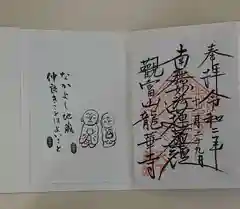 奉拝 令和二年
十一月二十九日
南無妙法蓮華経
觀富山龍華寺
なかよし地蔵
仲良きことはよいこと